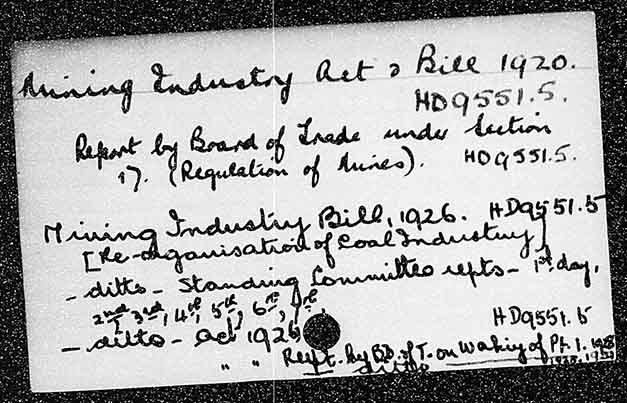 Mining Industry Act & Bill 1920.
HD9551.5.
Report by Board of Trade under Section
17. (Regulation of Mines). HD9551.5.
Mining Industry Bill, 1926. HD9551.5
[Re-organisation of Coal Industry]
- ditto - Standing Committee repts - 1st day,
2nd, 3rd, 4th, 5th, 6th, 7th
- ditto - Act 1926 HD9551.5
" " Rept. by Bd. of T. on Working of Pt. 1. 1928
ditto